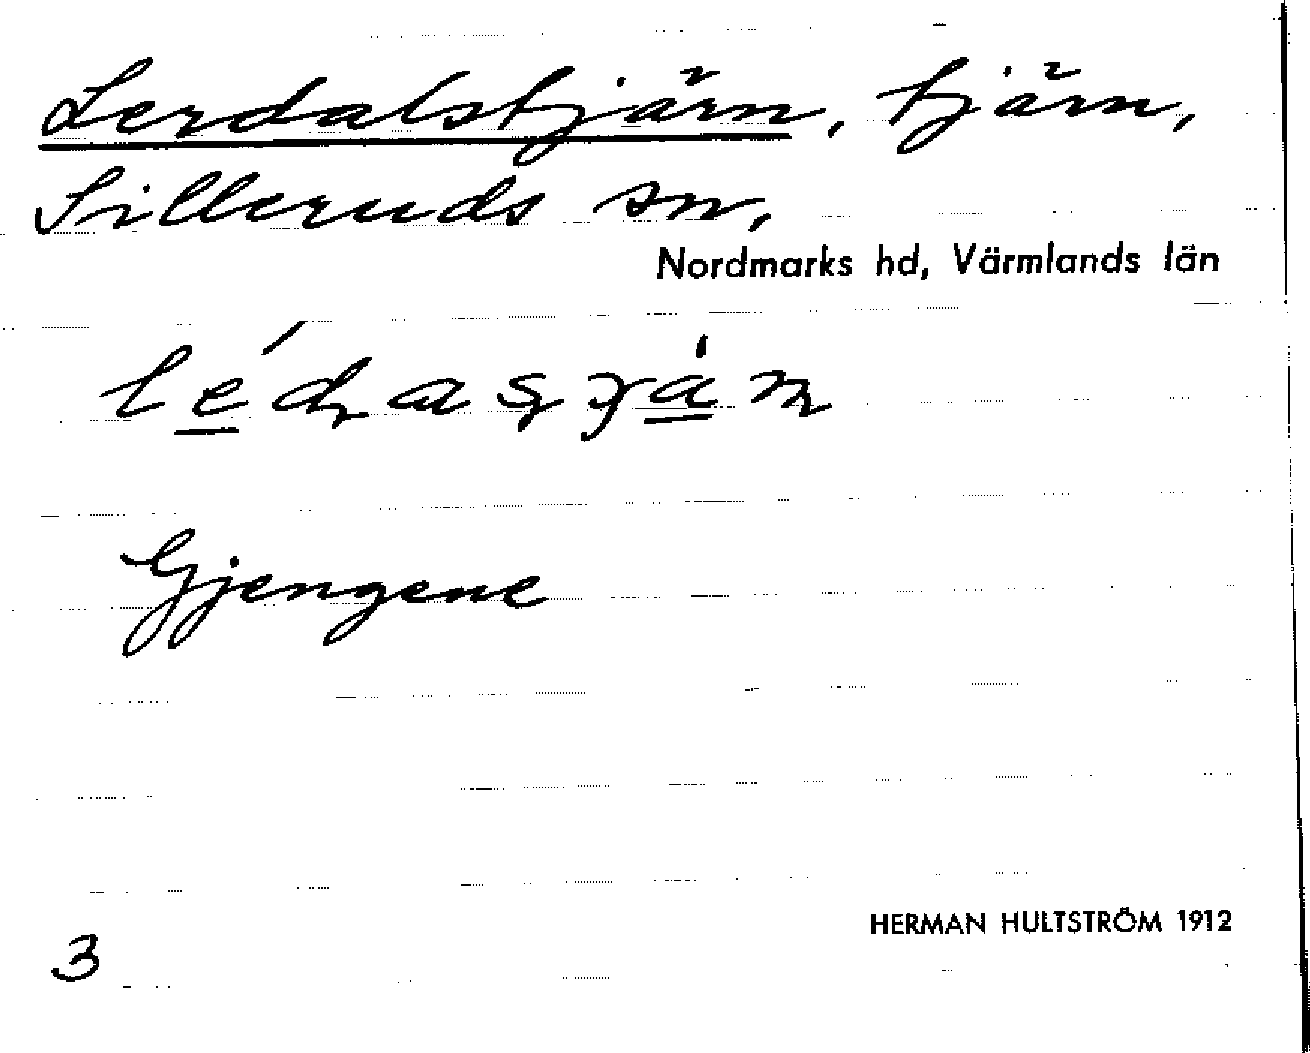 Lerdalstjärn, tjärn,
Silleruds sn,
Nordmarks hd, Värmlands län
Gjengene
HERMAN HULTSTRÖM 1912
3